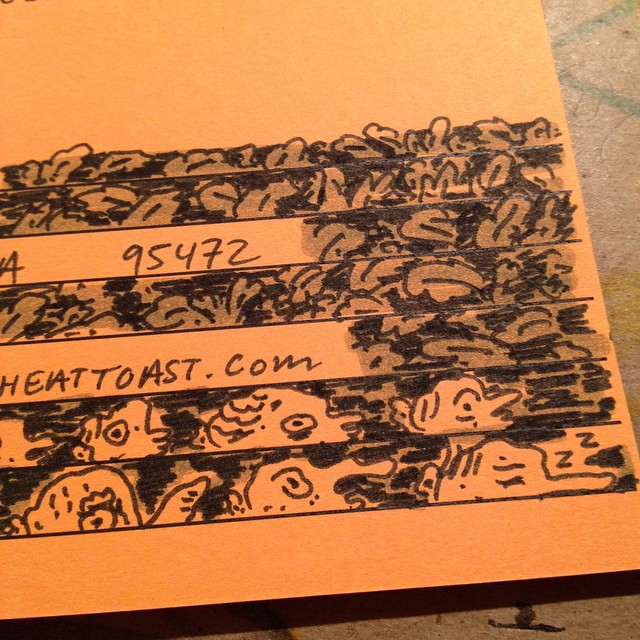 A 95472
HEATTOAST.COM
Z Z